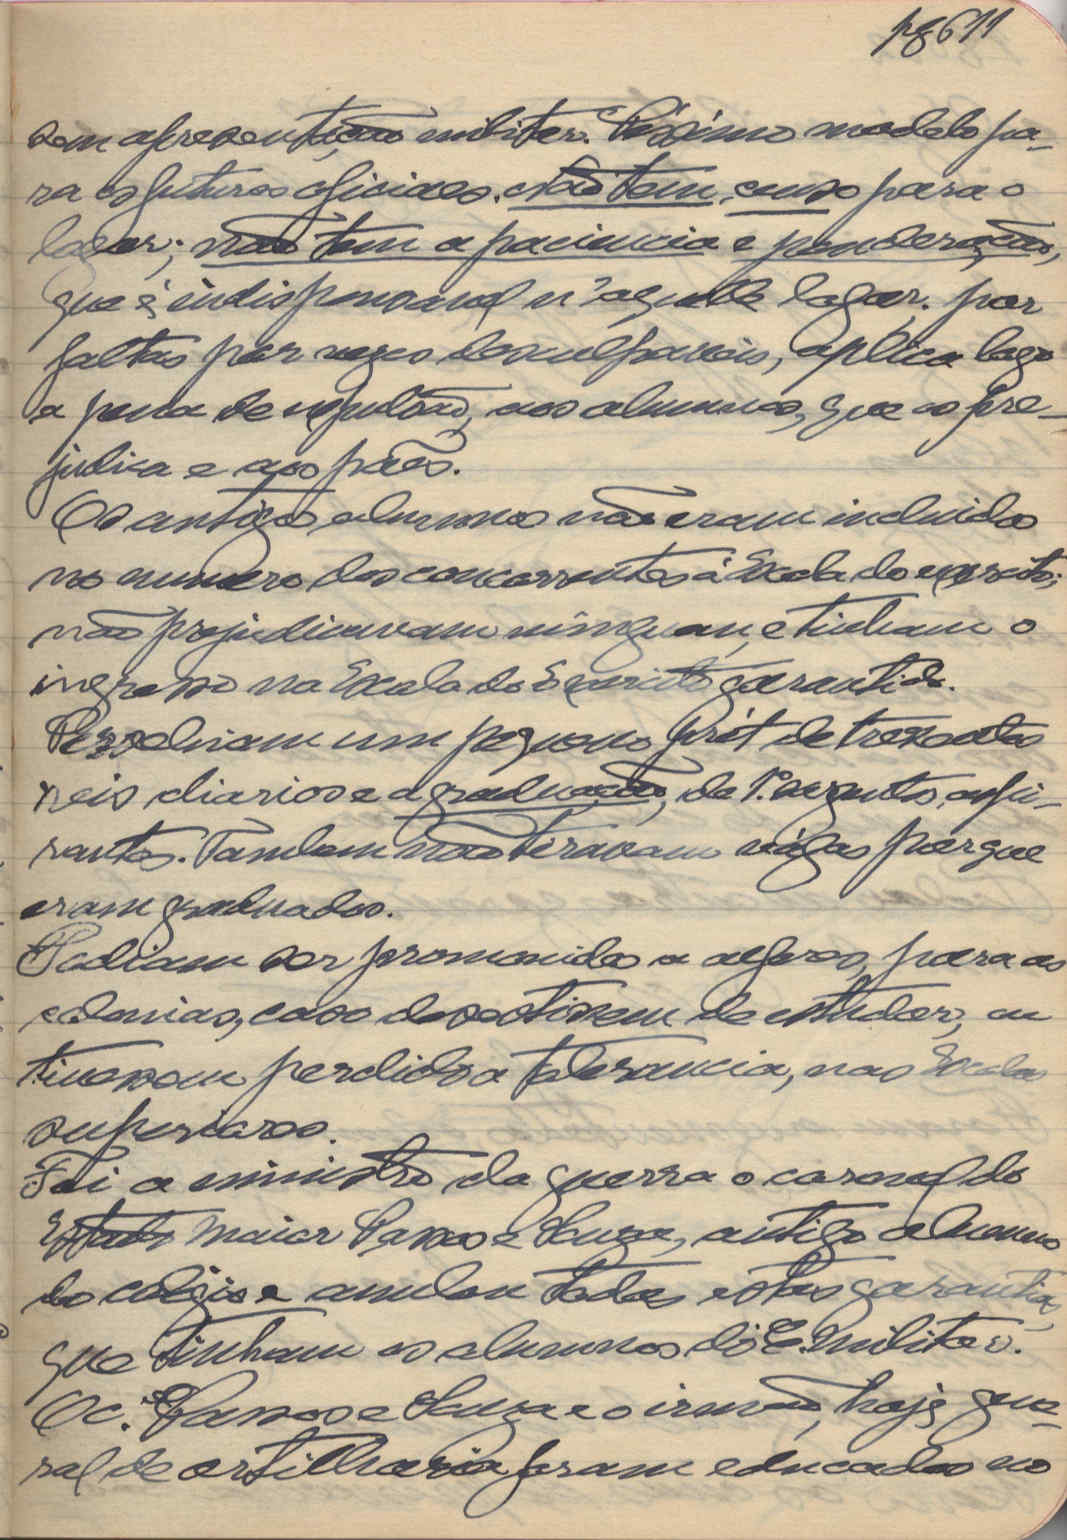 pg 611
sem apresentação militar. Péssimo modelo pa-
ra os futuros oficiaes. Não tem, censo para o
logar; não tem a paciencia e ponderação,
que é indispensavel n'aquelle logar. por
faltas por vezes desculpaveis, aplica logo
a pena de expulsão, aos alumnos, que os pre-
judica e aos paes.
Os antigos alumnos não eram incluidos
no numero dos concorrentes á Escola do exercito;
não prejudicavam ninguem, e tinham o
ingresso na Escola do Exercito garantido.
Recebiam um pequeno prét de trezentos
reis diarios e a graduação, de 1.os sargentos aspi-
rantes. Tambem não tiravam vagas porque
eram graduados.
Podiam ser promovidos a alferes, para as
colonias, caso desistissem de estudar, ou
tivessem perdido a tolerancia, nas Escolas
superiores.
Foi a ministro da guerra o coronel do
Estado Maior Passos e Souza, antigo alumno
do colegio e anulou todas estas garantias,
que tinham os alumnos do C. Militar.
O c.el Passos e Souza e o irmão, hoje gene-
ral de artilharia foram educados no